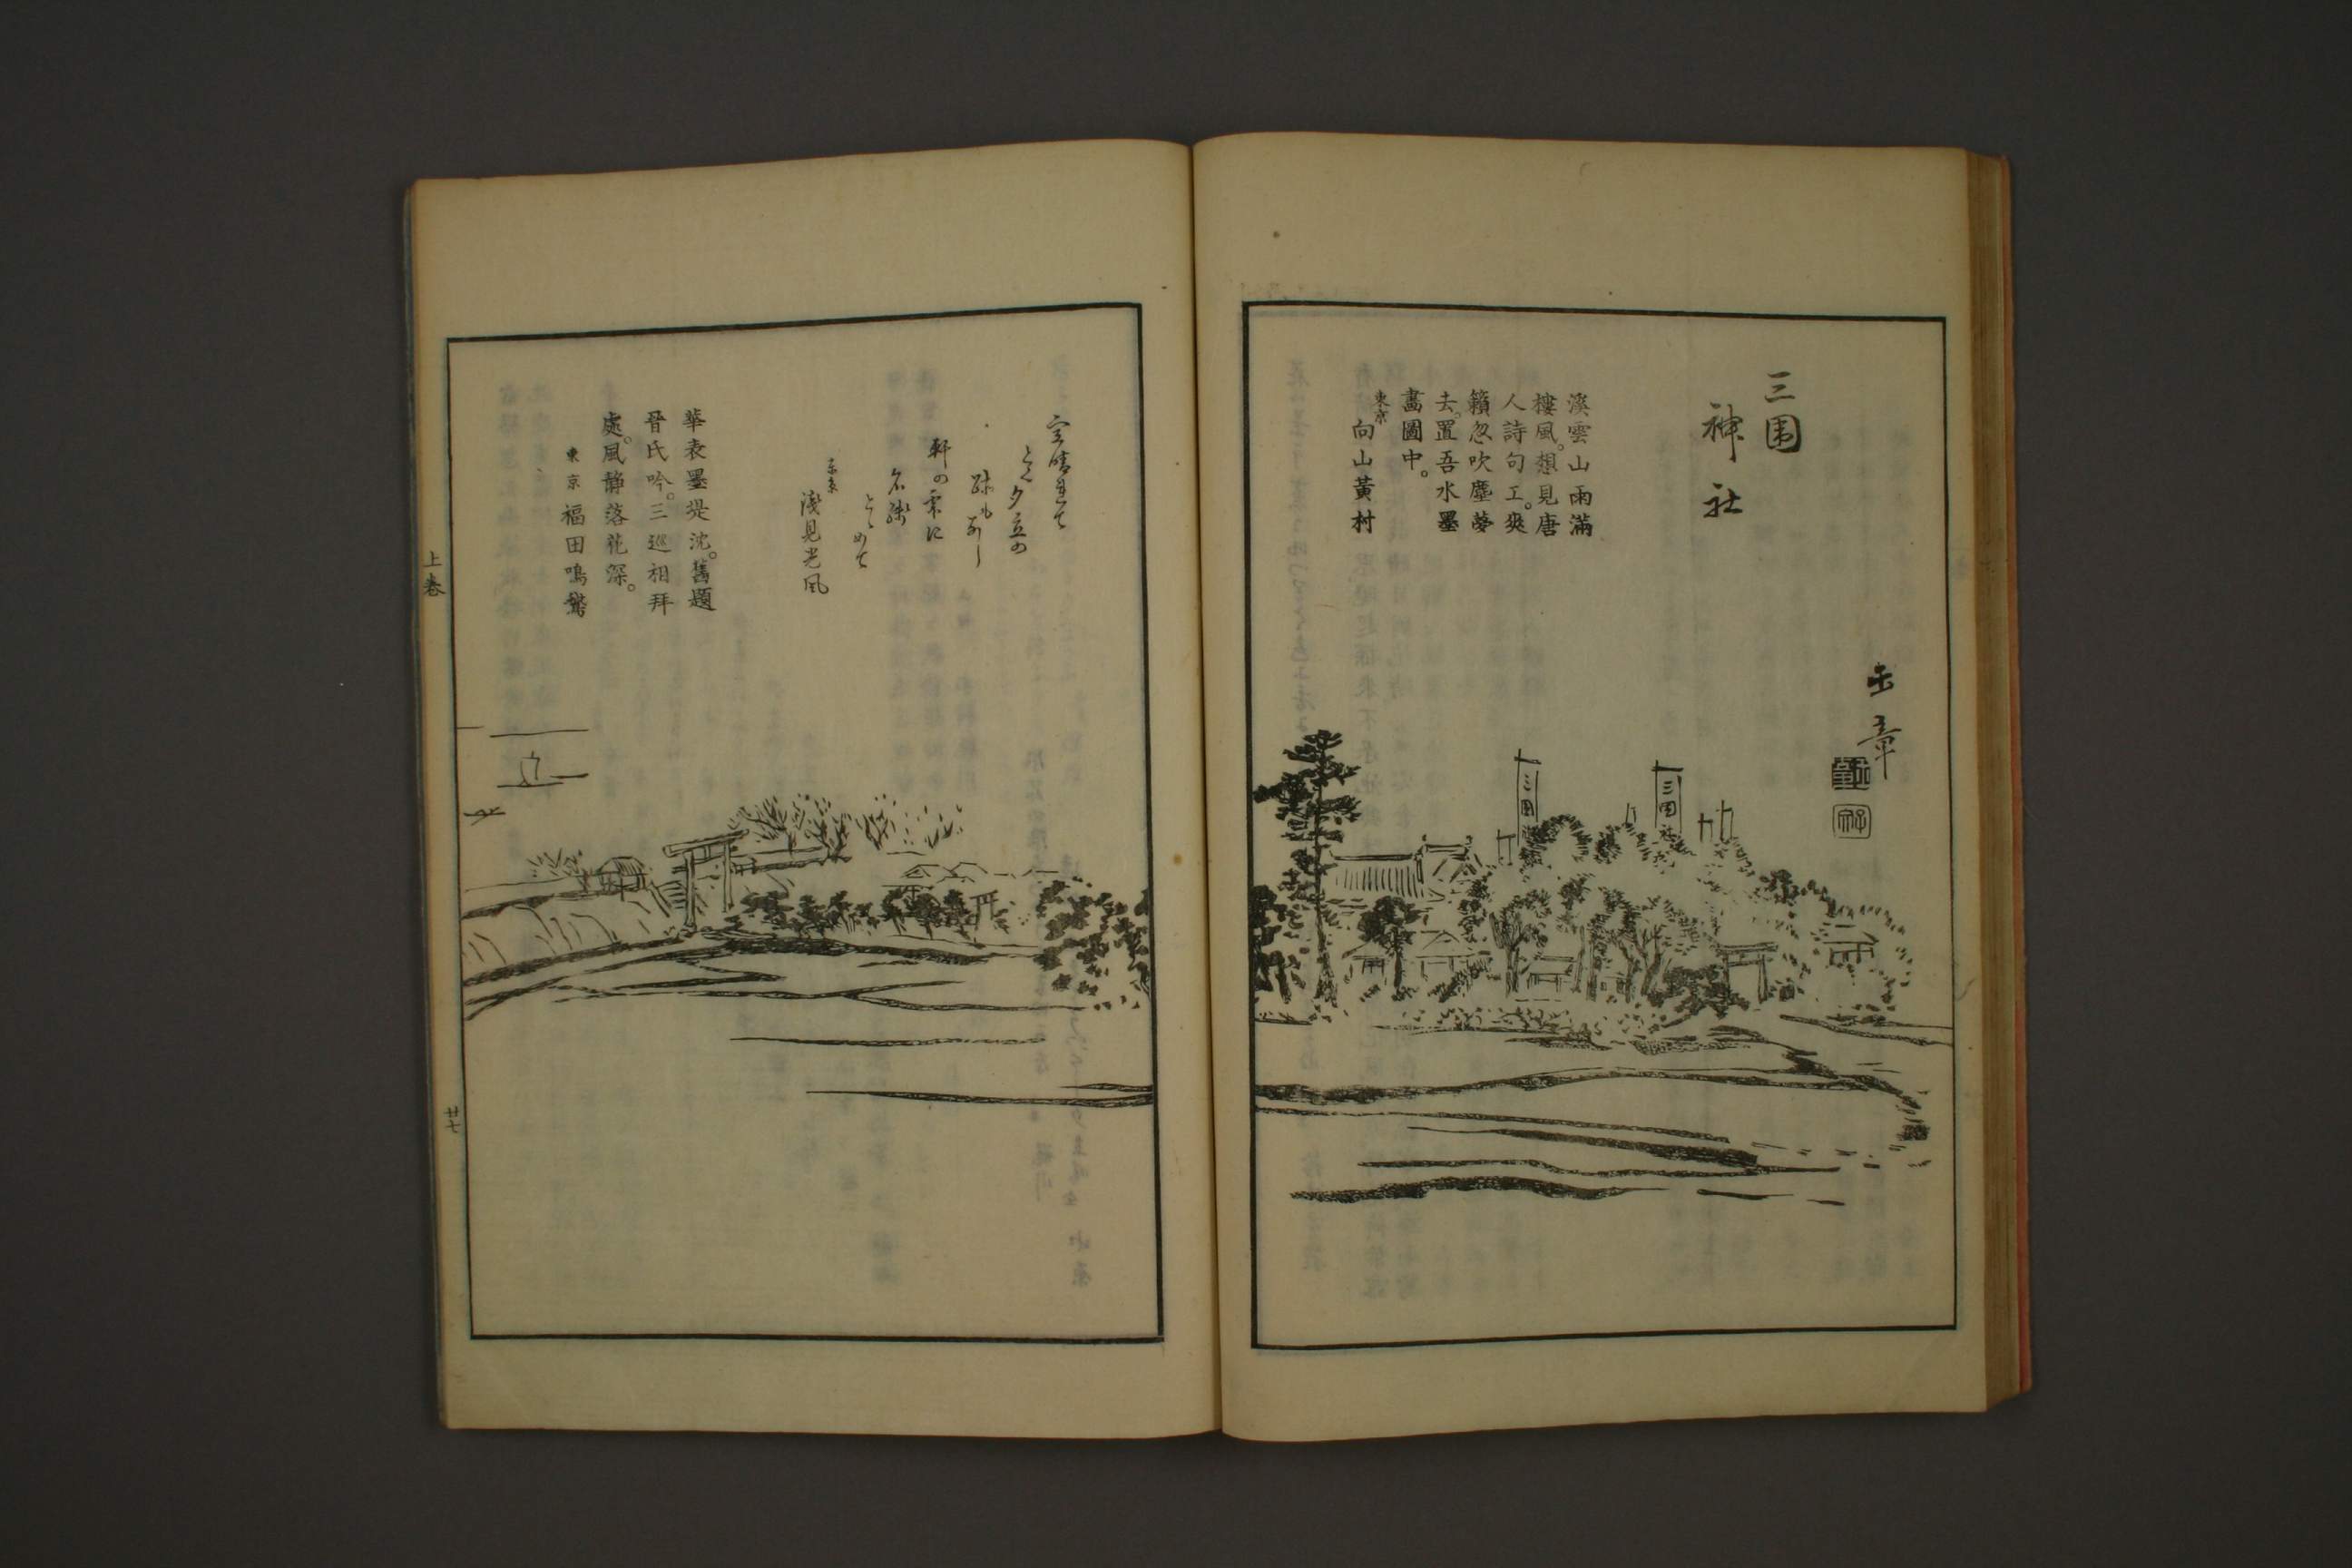 三囲
神社
玉章
溪雲山雨滿
樓風。想見唐
人詩句工。爽
籟忽吹塵夢
去。置吾水墨
畫圖中。
東京 向山黃村
三囲
三囲社
空晴れて
とく夕立の
跡もなし
軒の雫に
名残
とゝめて
東京
淺見光風
華表墨堤沈。舊題
晉氏吟。三巡相拜
處。風静落花深。
東京 福田鳴鵞
上卷
廿七